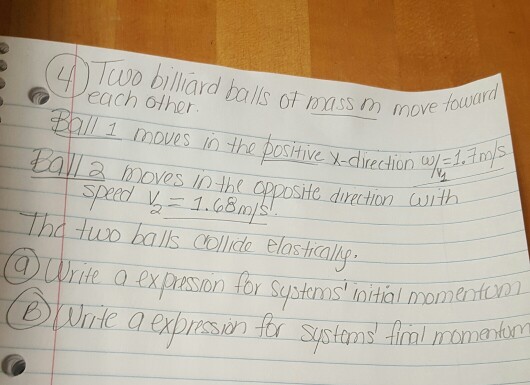 ④ Two billiard balls of mass m move toward
each other.
Ball 1 moves in the positive x-direction w/ v₁=1.7m/s
Ball 2 moves in the opposite direction with
speed v₂ = 1.68m/s.
The two balls collide elastically.
ⓐ Write a expression for systems' initial momentum
Ⓑ Write a expression for systems' final momentum